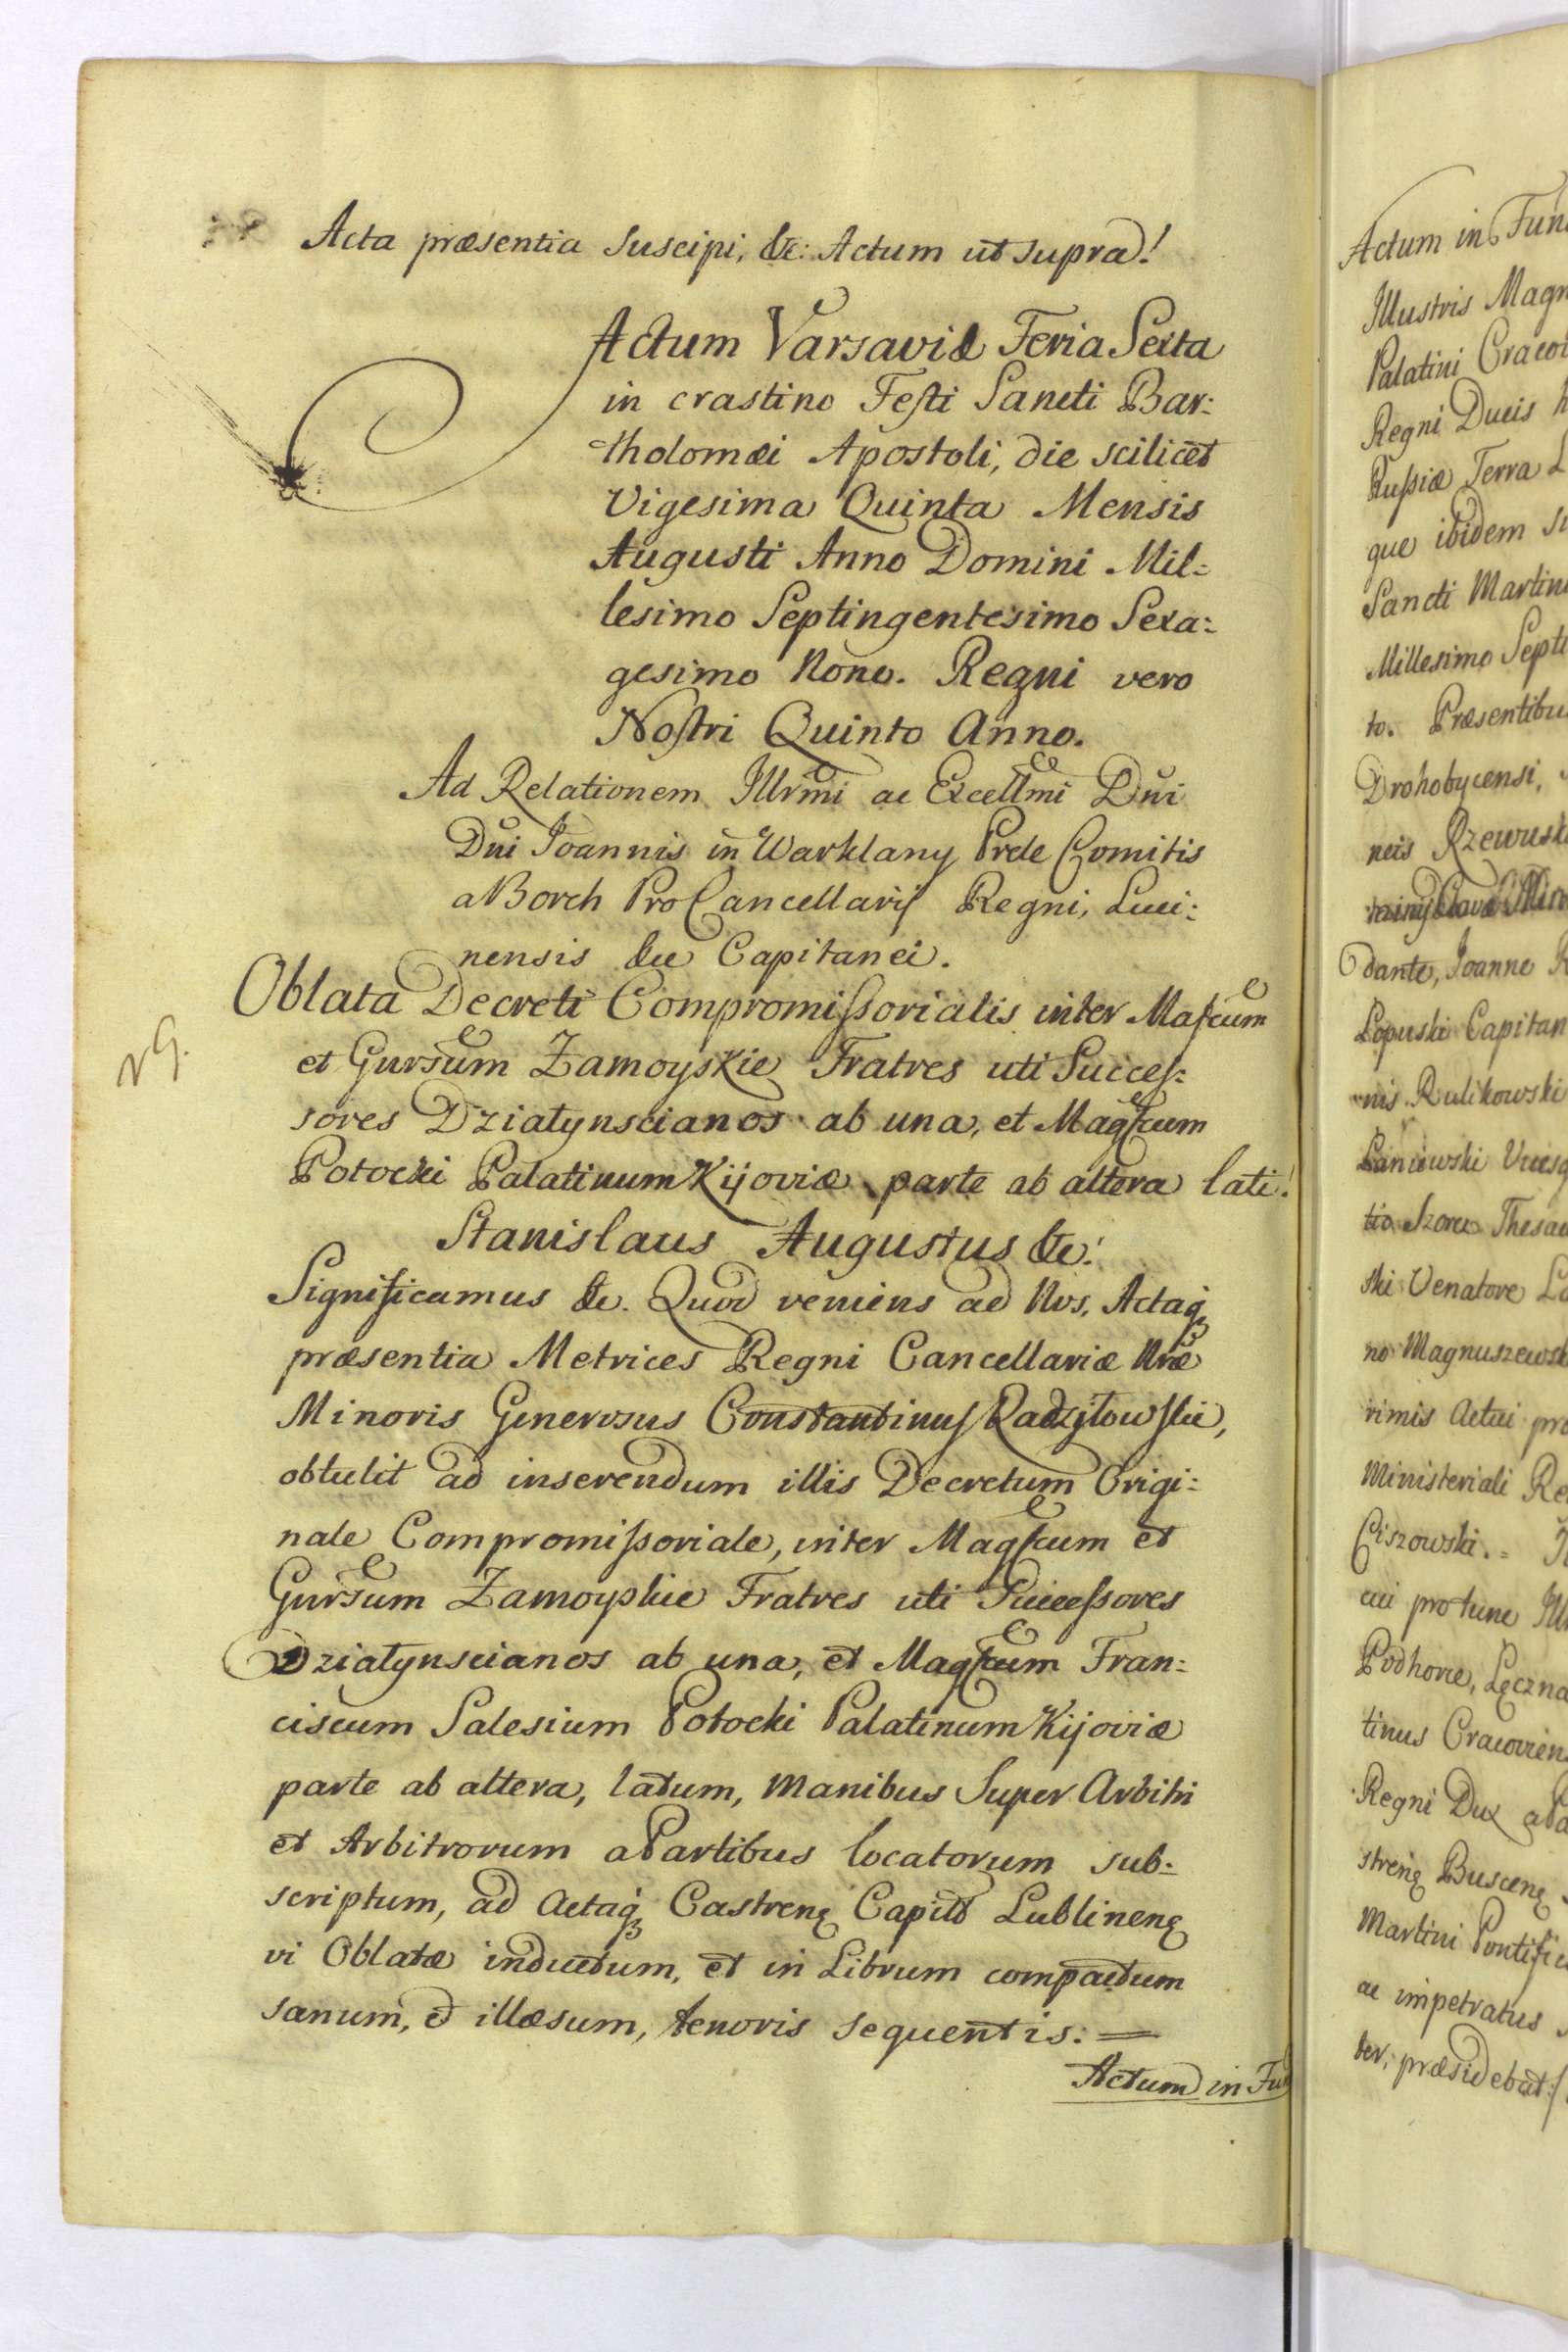 Acta præsentia suscipi, &c: Actum ut supra!
Actum Varsaviæ Feria Sexta
in crastino Festi Sancti Bar:
tholomæi Apostoli, die scilicet
Vigesima Quinta Mensis
Augusti Anno Domini Mil:
lesimo Septingentesimo Sexa:
gesimo Nono. Regni vero
Nostri Quinto Anno.
Ad Relationem Illrmi ac Excellmi Dni
Dni Joannis in Warklany Prele Comitis
a Borch ProCancellarij Regni, Luci:
nensis &c Capitanei.
NG.
Oblata Decreti Compromissorialis inter Mafcum
et Gnrsum Zamoyskie Fratres uti Succes:
sores Dziatynscianos ab una, et Magfcum
Potocki Palatinum Kijoviæ parte ab altera lati!
Stanislaus Augustus &c!
Significamus &c. Quod veniens ad Nos, Actaq
præsentia Metrices Regni Cancellariæ Nræ
Minoris Generosus Constantinus Radzitowskie,
obtulit ad inserendum illis Decretum Origi:
nale Compromissoriale, inter Magfcum et
Gnrsum Zamoyskie Fratres uti Successores
Dziatynscianos ab una, et Magfcum Fran:
ciscum Salesium Potocki Palatinum Kijoviæ
parte ab altera, latum, manibus Super Arbitri
et Arbitrorum a Partibus locatorum sub:
scriptum, ad Actaq Castren Capitt Lublinen
vi Oblatæ inductum, et in Librum compactum
sanum, et illæsum, tenoris sequentis: =
Actum in Fun
Actum in Fun
Illustris Magn
Palatini Craco
Regni Ducis
Russiæ Terra L
que ibidem
Sancti Martin
Millesimo Septi
to. Præsentibu
Drohobycensi,
neis Rzewusk
dante, Joanne R
Lopuski Capitan
nis Rulikowski
Laniewski
tio Thesau
ski Venatore Lo
no Magnuszewsk
rimis Actui pro
Ministeriali Re
Ciszowski. =
cui protunc Ill
Podhorce, Lęczna
tinus Cracovien
Regni Dux
stren Buscen
Martini Pontifi
ac impetratus
ter, præsidebat